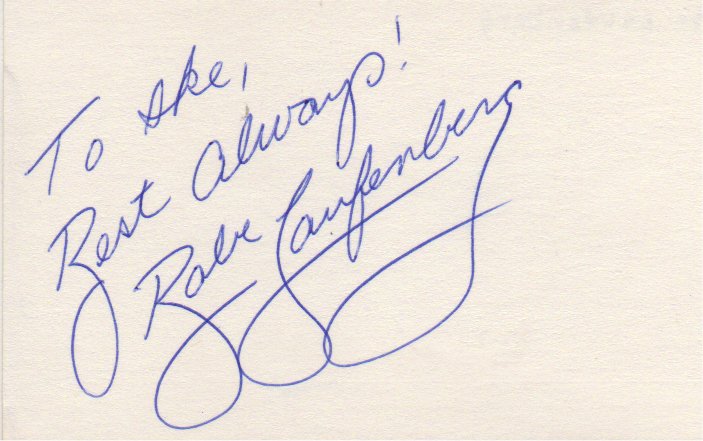 To Ike,
Best Always!
Babe Laufenberg